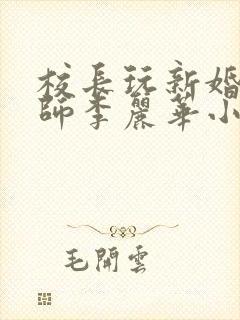 校長玩新婚
師李麗華小
毛開雲